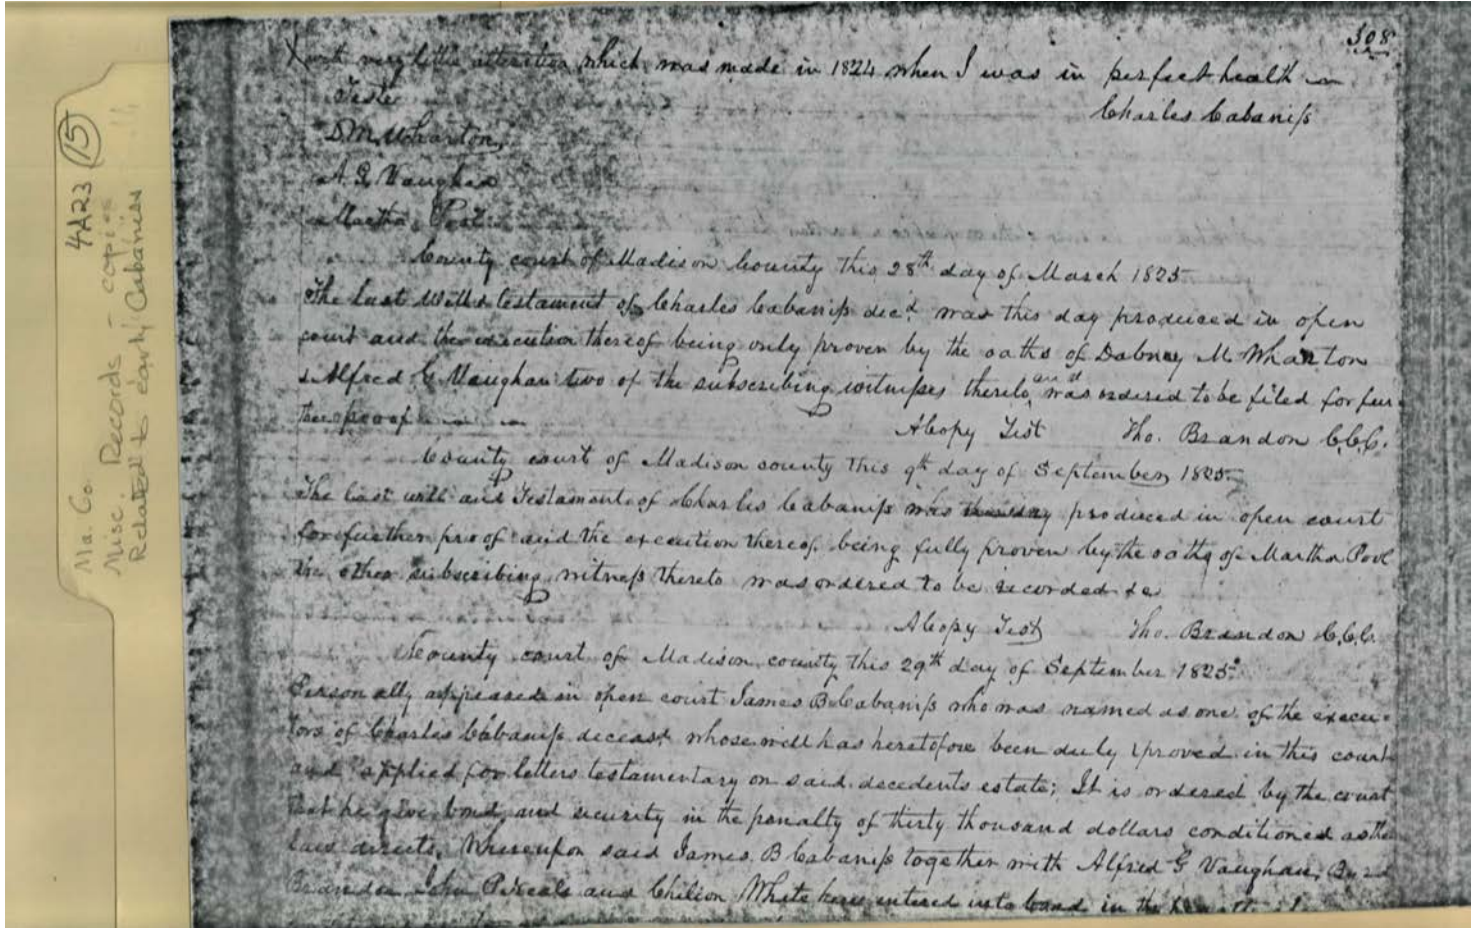 308
with very little alteration which was made in 1824 when I was in perfect health
Teste
Charles Cabaniss
D. M. Wharton,
A. G. Vaughan
Martha Pool
County court of Madison County this 28th day of March 1825
The last Will & testament of Charles Cabaniss decd. was this day produced in open
court and the execution thereof being only proven by the oaths of Dabney M Wharton
& Alfred G Vaughan two of the subscribing witnesses thereto and was ordered to be filed for fur
ther proof
A Copy Test Tho. Brandon C.C.C.
County court of Madison county this 9th day of September 1825
The last will and Testament of Charles Cabaniss was this day produced in open court
for further proof and the execution thereof being fully proven by the oaths of Martha Pool
the other subscribing witness thereto was ordered to be recorded &c
A Copy Test Tho. Brandon C.C.C.
County court of Madison county this 29th day of September 1825
Personally appeared in open court James B Cabaniss who was named as one of the execu-
tors of Charles Cabaniss deceasd whose will has heretofore been duly proved in this court
and applied for letters testamentary on said decedents estate; It is ordered by the court
that he give bond and security in the penalty of thirty thousand dollars conditioned as the
law directs, Whereupon said James B Cabaniss together with Alfred G Vaughan,
John P Neals and Chilion White here entered into bond in the
4A23 15
Ma. Co.
Misc. Records - copies
Related to early Cabaniss